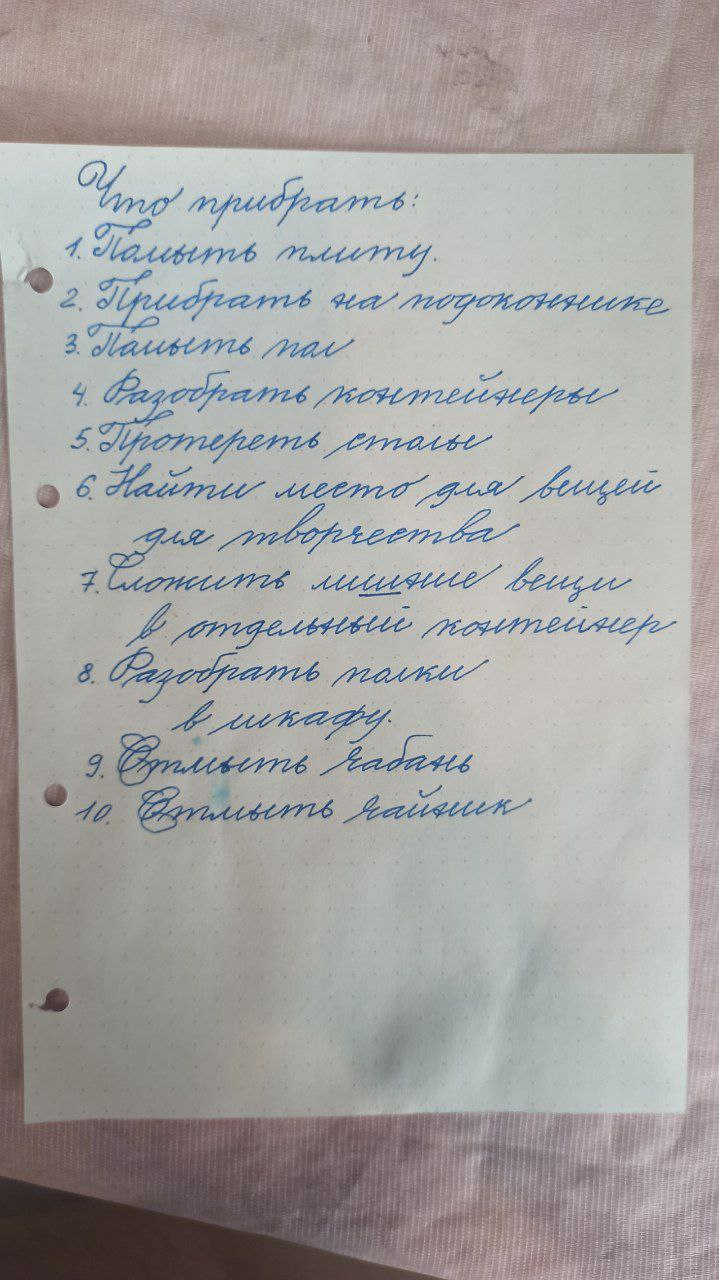 Что прибрать:
1. Помыть плиту.
2. Прибрать на подоконнике
3. Помыть пол
4. Разобрать контейнеры
5. Протереть столы
6. Найти место для вещей
для творчества
7. Сложить лишние вещи
в отдельный контейнер
8. Разобрать полки
в шкафу.
9. Отмыть чабань
10. Отмыть чайник